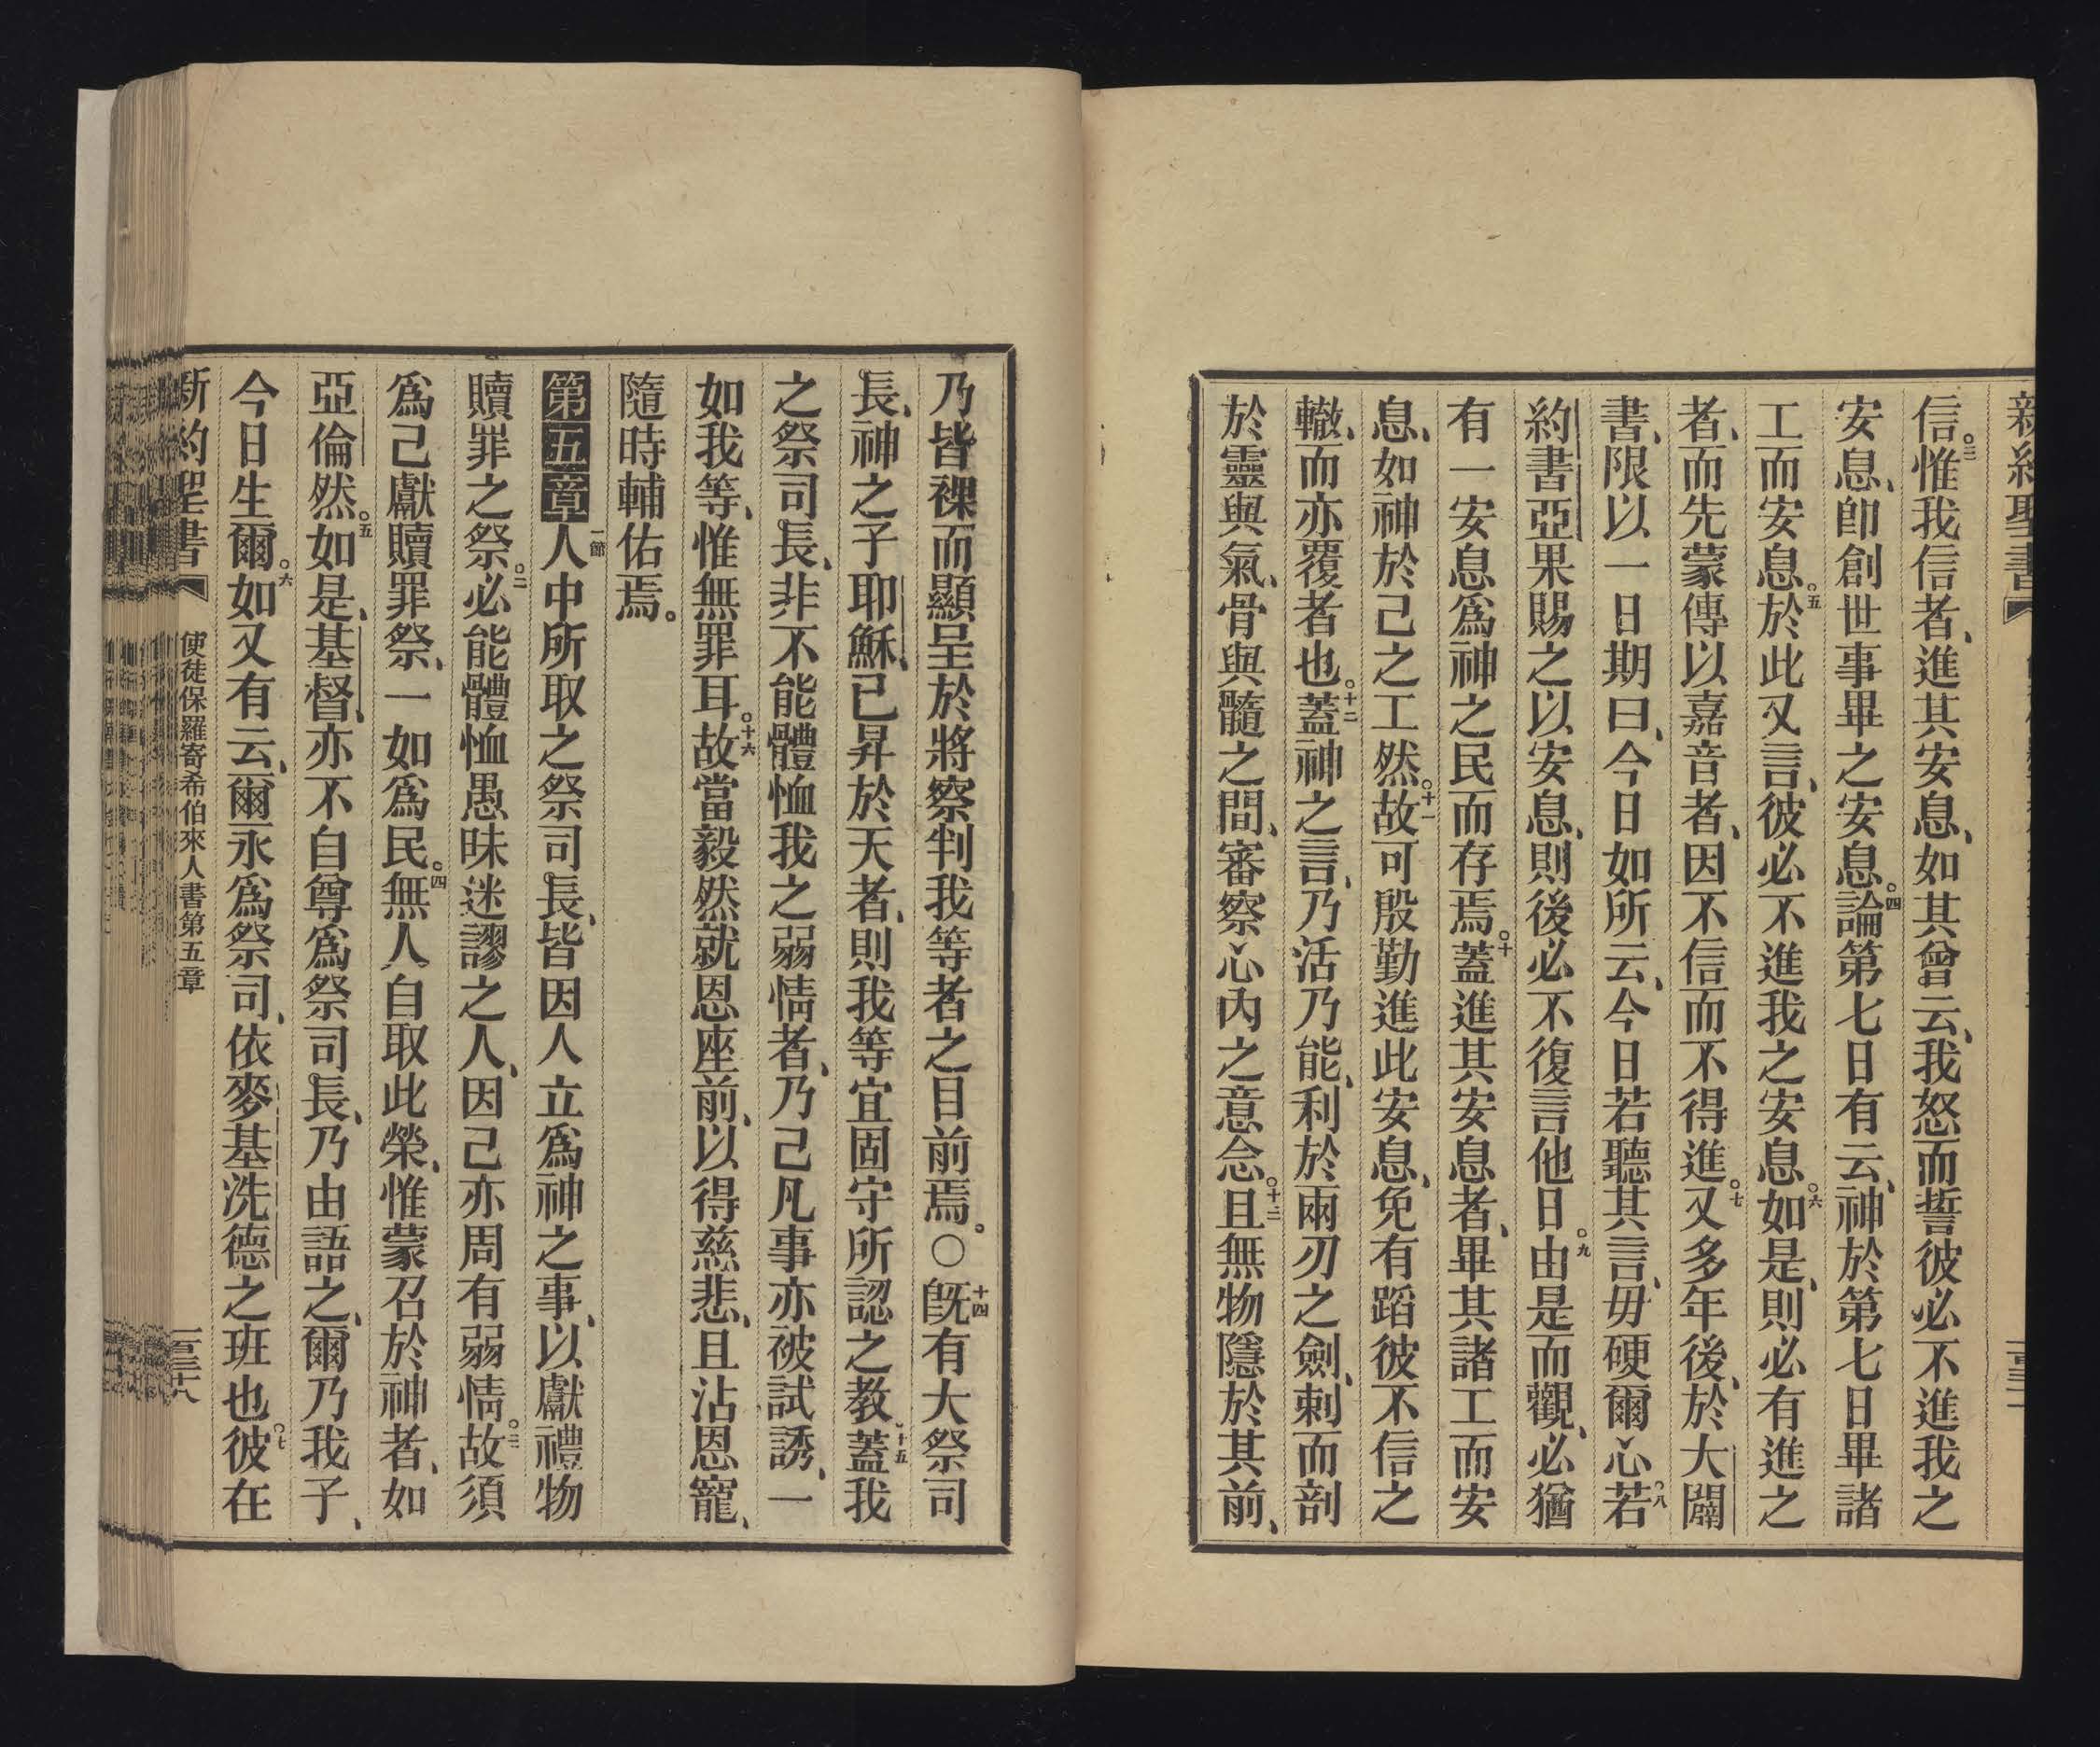 新約聖書
信。三惟我信者、進其安息、如其曾云、我怒而誓彼必不進我之
安息、卽創世事畢之安息。四論第七日有云、神於第七日畢諸
工而安息。五於此又言、彼必不進我之安息。六如是、則必有進之
者、而先蒙傳以嘉音者、因不信而不得進。七又多年後、於大闢
書、限以一日期曰、今日如所云、今日若聽其言、毋硬爾心。八若
約書亞果賜之以安息、則後必不復言他日。九由是而觀、必猶
有一安息爲神之民而存焉。十蓋進其安息者、畢其諸工而安
息、如神於己之工然。十一故可殷勤進此安息、免有蹈彼不信之
轍、而亦覆者也。十二蓋神之言、乃活乃能、利於兩刃之劍、刺而剖
於靈與氣、骨與髓之間、審察心內之意念。十三且無物隱於其前、
乃皆裸而顯呈於將察判我等者之目前焉。○十四旣有大祭司
長、神之子耶穌、已昇於天者、則我等宜固守所認之教、十五蓋我
之祭司長、非不能體恤我之弱情者、乃己凡事亦被試誘、一
如我等、惟無罪耳。十六故當毅然就恩座前、以得慈悲、且沾恩寵、
隨時輔佑焉。
第五章一節人中所取之祭司長、皆因人立爲神之事、以獻禮物
贖罪之祭。二必能體恤愚昧迷謬之人、因己亦周有弱情。三故須
爲己獻贖罪祭、一如爲民。四無人自取此榮、惟蒙召於神者、如
亞倫然。五如是、基督、亦不自尊爲祭司長、乃由語之、爾乃我子、
今日生爾。六如又有云、爾永爲祭司、依麥基洗德之班也。七彼在
新約聖書 使徒保羅寄希伯來人書第五章 一百三十八